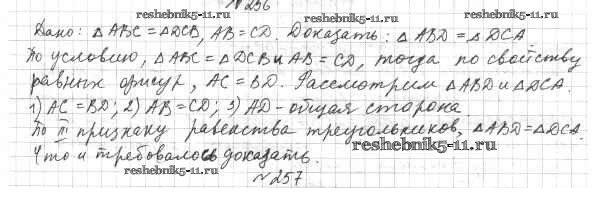 №256
reshebnik5-11.ru reshebnik5-11.ru
Дано: △ABC=△DCB, AB=CD. Доказать: △ABD=△DCA
По условию, △ABC=△DCB и AB=CD, тогда по свойству
равных фигур, AC=BD. Рассмотрим △ABD и △DCA.
1) AC=BD; 2) AB=CD; 3) AD-общая сторона.
По III признаку равенства треугольников, △ABD=△DCA.
Что и требовалось доказать. reshebnik5-11.ru
reshebnik5-11.ru №257 reshebnik5-11.ru